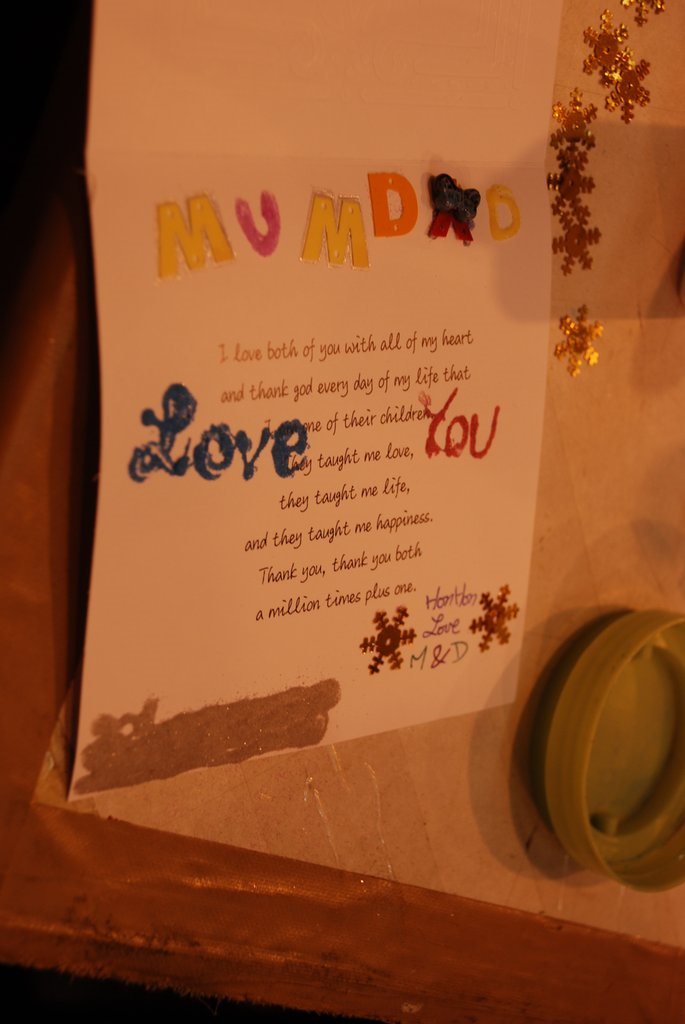 MUM DAD
I love both of you with all of my heart
and thank god every day of my life that
one of their children
they taught me love,
Love You
they taught me life,
and they taught me happiness.
Thank you, thank you both
a million times plus one.
HonHon
Love
M&D